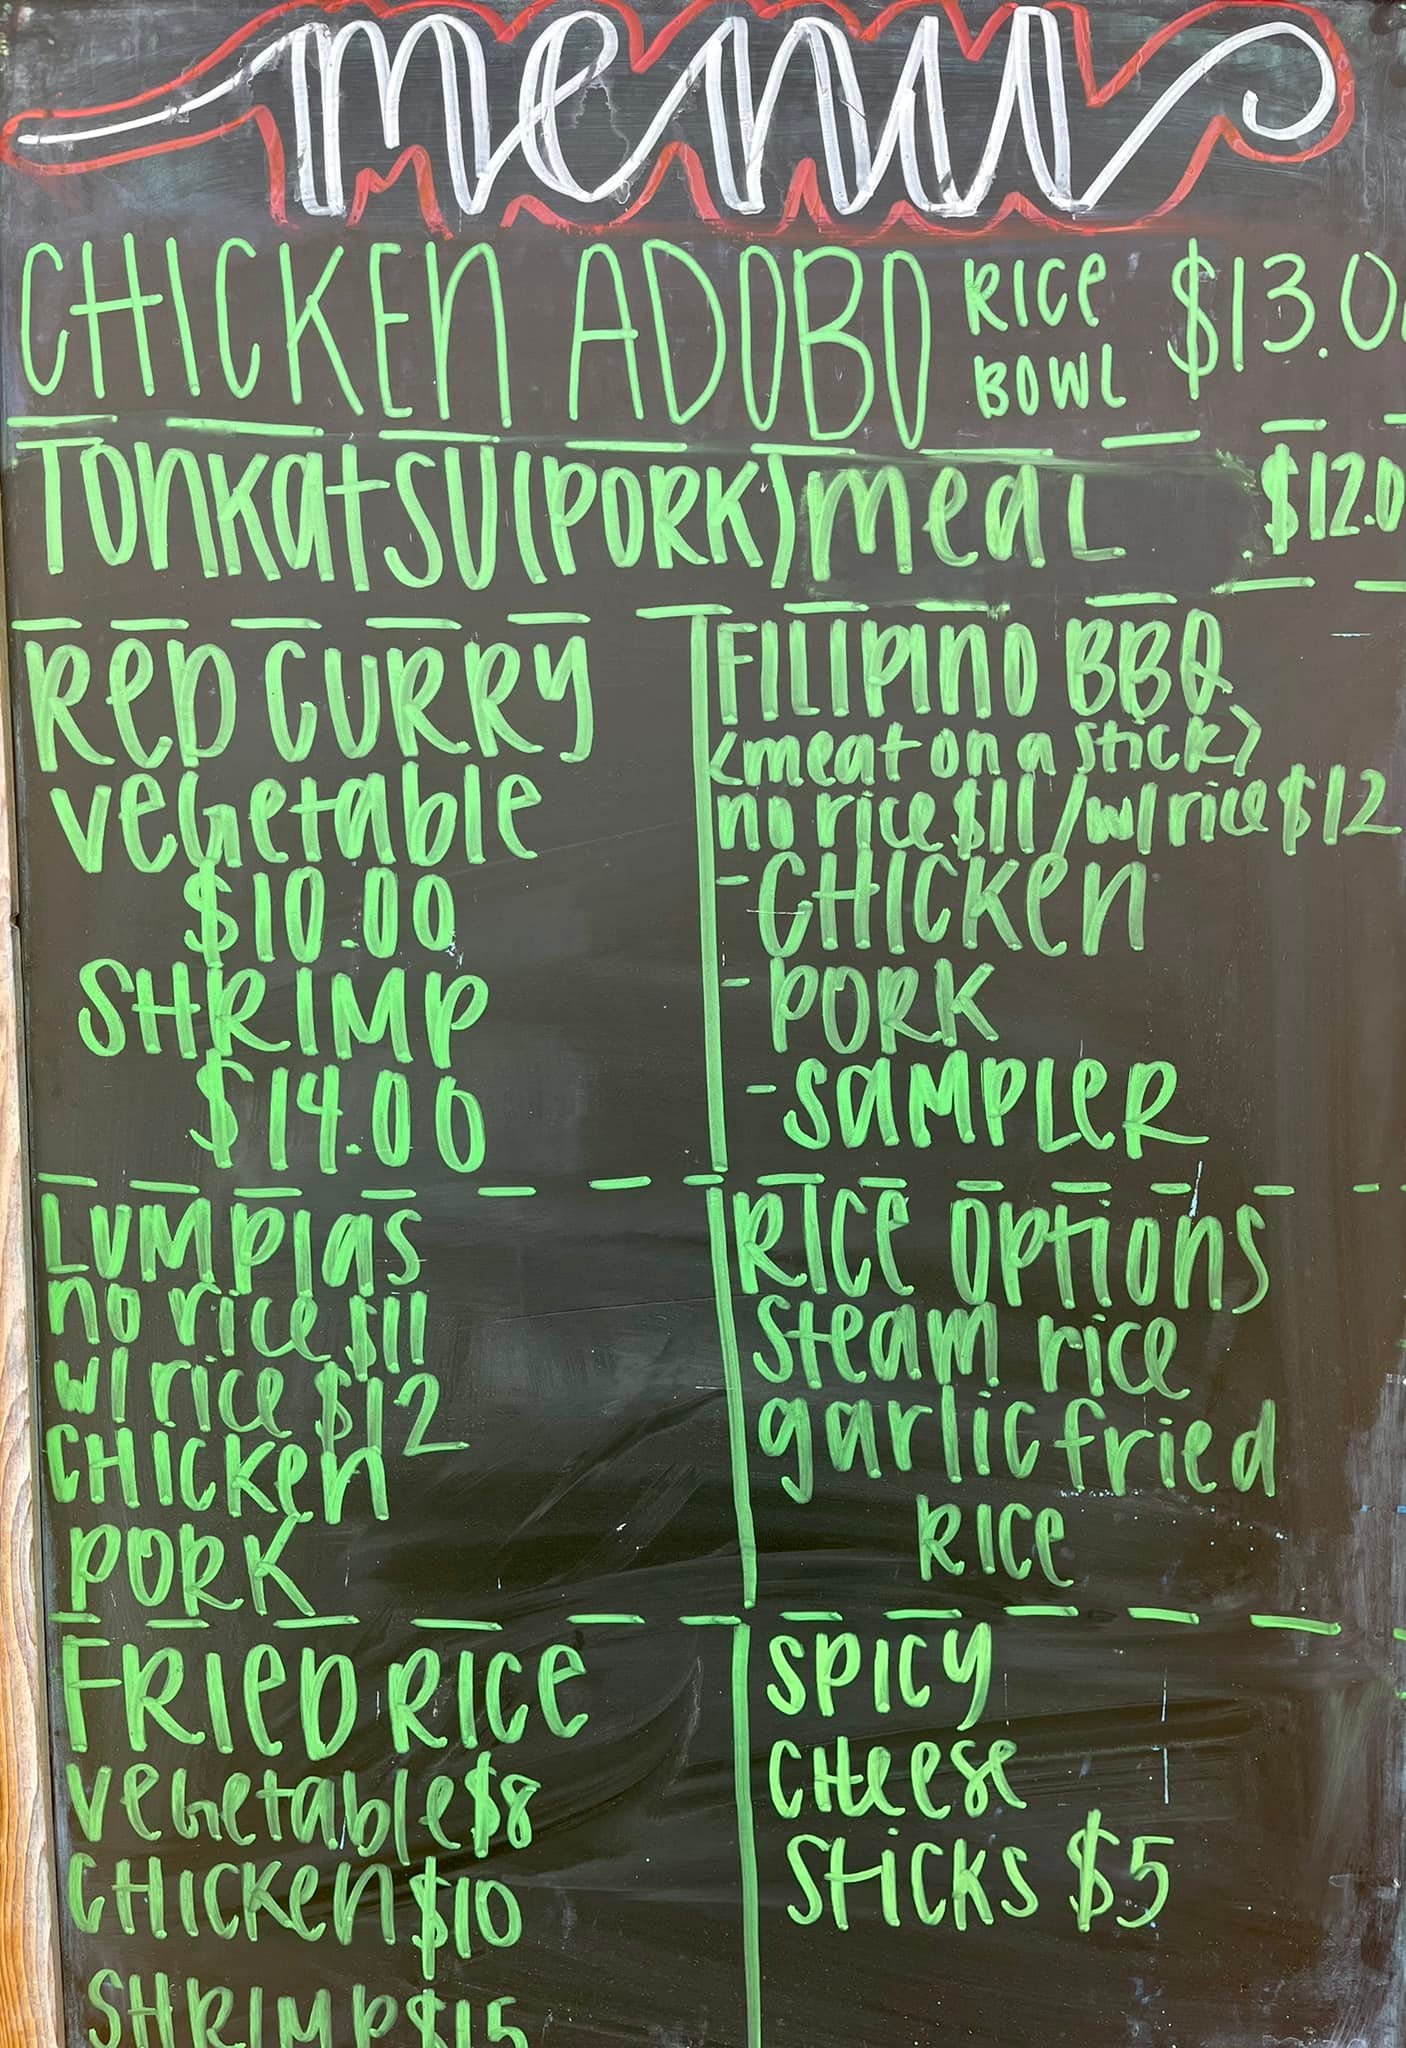 menu
CHICKEN ADOBO RICE BOWL $13.0
TONKATSU (PORK) MEAL $12.0
RED CURRY
VEGETABLE
$10.00
SHRIMP
$14.00
FILIPINO BBQ
<meat on a stick>
no rice $11/w/rice $12
- CHICKEN
- PORK
- SAMPLER
LUMPIAS
no rice $11
w/rice $12
CHICKEN
PORK
RICE OPTIONS
steam rice
garlic fried
RICE
FRIED RICE
VEGETABLE $8
CHICKEN $10
SHRIMP $15
SPICY
CHEESE
STICKS $5